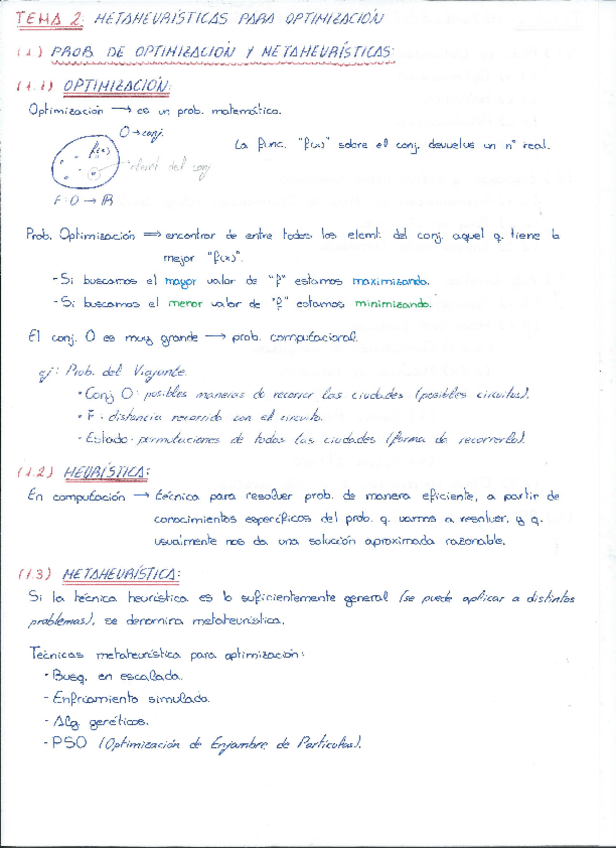 TEMA 2: METAHEURÍSTICAS PARA OPTIMIZACIÓN
(1) PROB DE OPTIMIZACIÓN Y METAHEURÍSTICAS:
(1.1) OPTIMIZACIÓN:
Optimización → es un prob. matemático.
O → conj.
f(x)
elemt. del conj
F: O → ℝ
La func. "f(x)" sobre el conj. devuelve un nº real.
Prob. Optimización ⇒ encontrar de entre todos los elemt. del conj. aquel q. tiene la
mejor "f(x)".
- Si buscamos el mayor valor de "f" estamos maximizando.
- Si buscamos el menor valor de "f" estamos minimizando.
El conj. O es muy grande → prob. computacional.
ej: Prob. del Viajante.
• Conj O: posibles maneras de recorrer las ciudades (posibles circuitos).
• F: distancia recorrida con el circuito.
• Estado: permutaciones de todas las ciudades (forma de recorrerlo).
(1.2) HEURÍSTICA:
En computación → técnica para resolver prob. de manera eficiente, a partir de
conocimientos específicos del prob. q. vamos a resolver, y q.
usualmente nos da una solución aproximada razonable.
(1.3) METAHEURÍSTICA:
Si la técnica heurística es lo suficientemente general (se puede aplicar a distintos
problemas), se denomina metaheurística.
Técnicas metaheurística para optimización:
- Busq. en escalada.
- Enfriamiento simulado.
- Alg. genéticos.
- PSO (Optimización de Enjambre de Partículas).